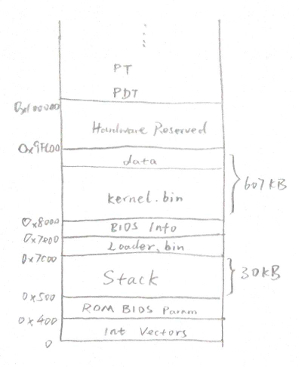 PT
PDT
0x100000
Hardware Reserved
0x9FC00
data
kernel.bin
607KB
0x8000
BIOS Info
0x7E00
Loader.bin
0x7C00
Stack
30KB
0x500
ROM BIOS Param
0x400
Int Vectors
0